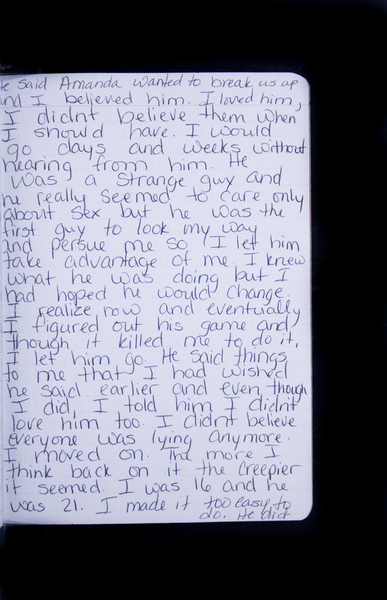 He said Amanda wanted to break us up
and I believed him. I loved him,
I didnt believe them when
I should have. I would
go days and weeks without
hearing from him. He
was a strange guy and
he really seemed to care only
about sex but he was the
first guy to look my way
and persue me so I let him
take advantage of me. I knew
what he was doing but I
had hoped he would change.
I realize now and eventually
I figured out his game and
though it killed me to do it,
I let him go. He said things
to me that I had wished
he said earlier and even though
I did, I told him I didnt
love him too. I didnt believe
everyone was lying anymore.
I moved on. The more I
think back on it the creepier
it seemed. I was 16 and he
was 21. I made it too easy to
do. He did